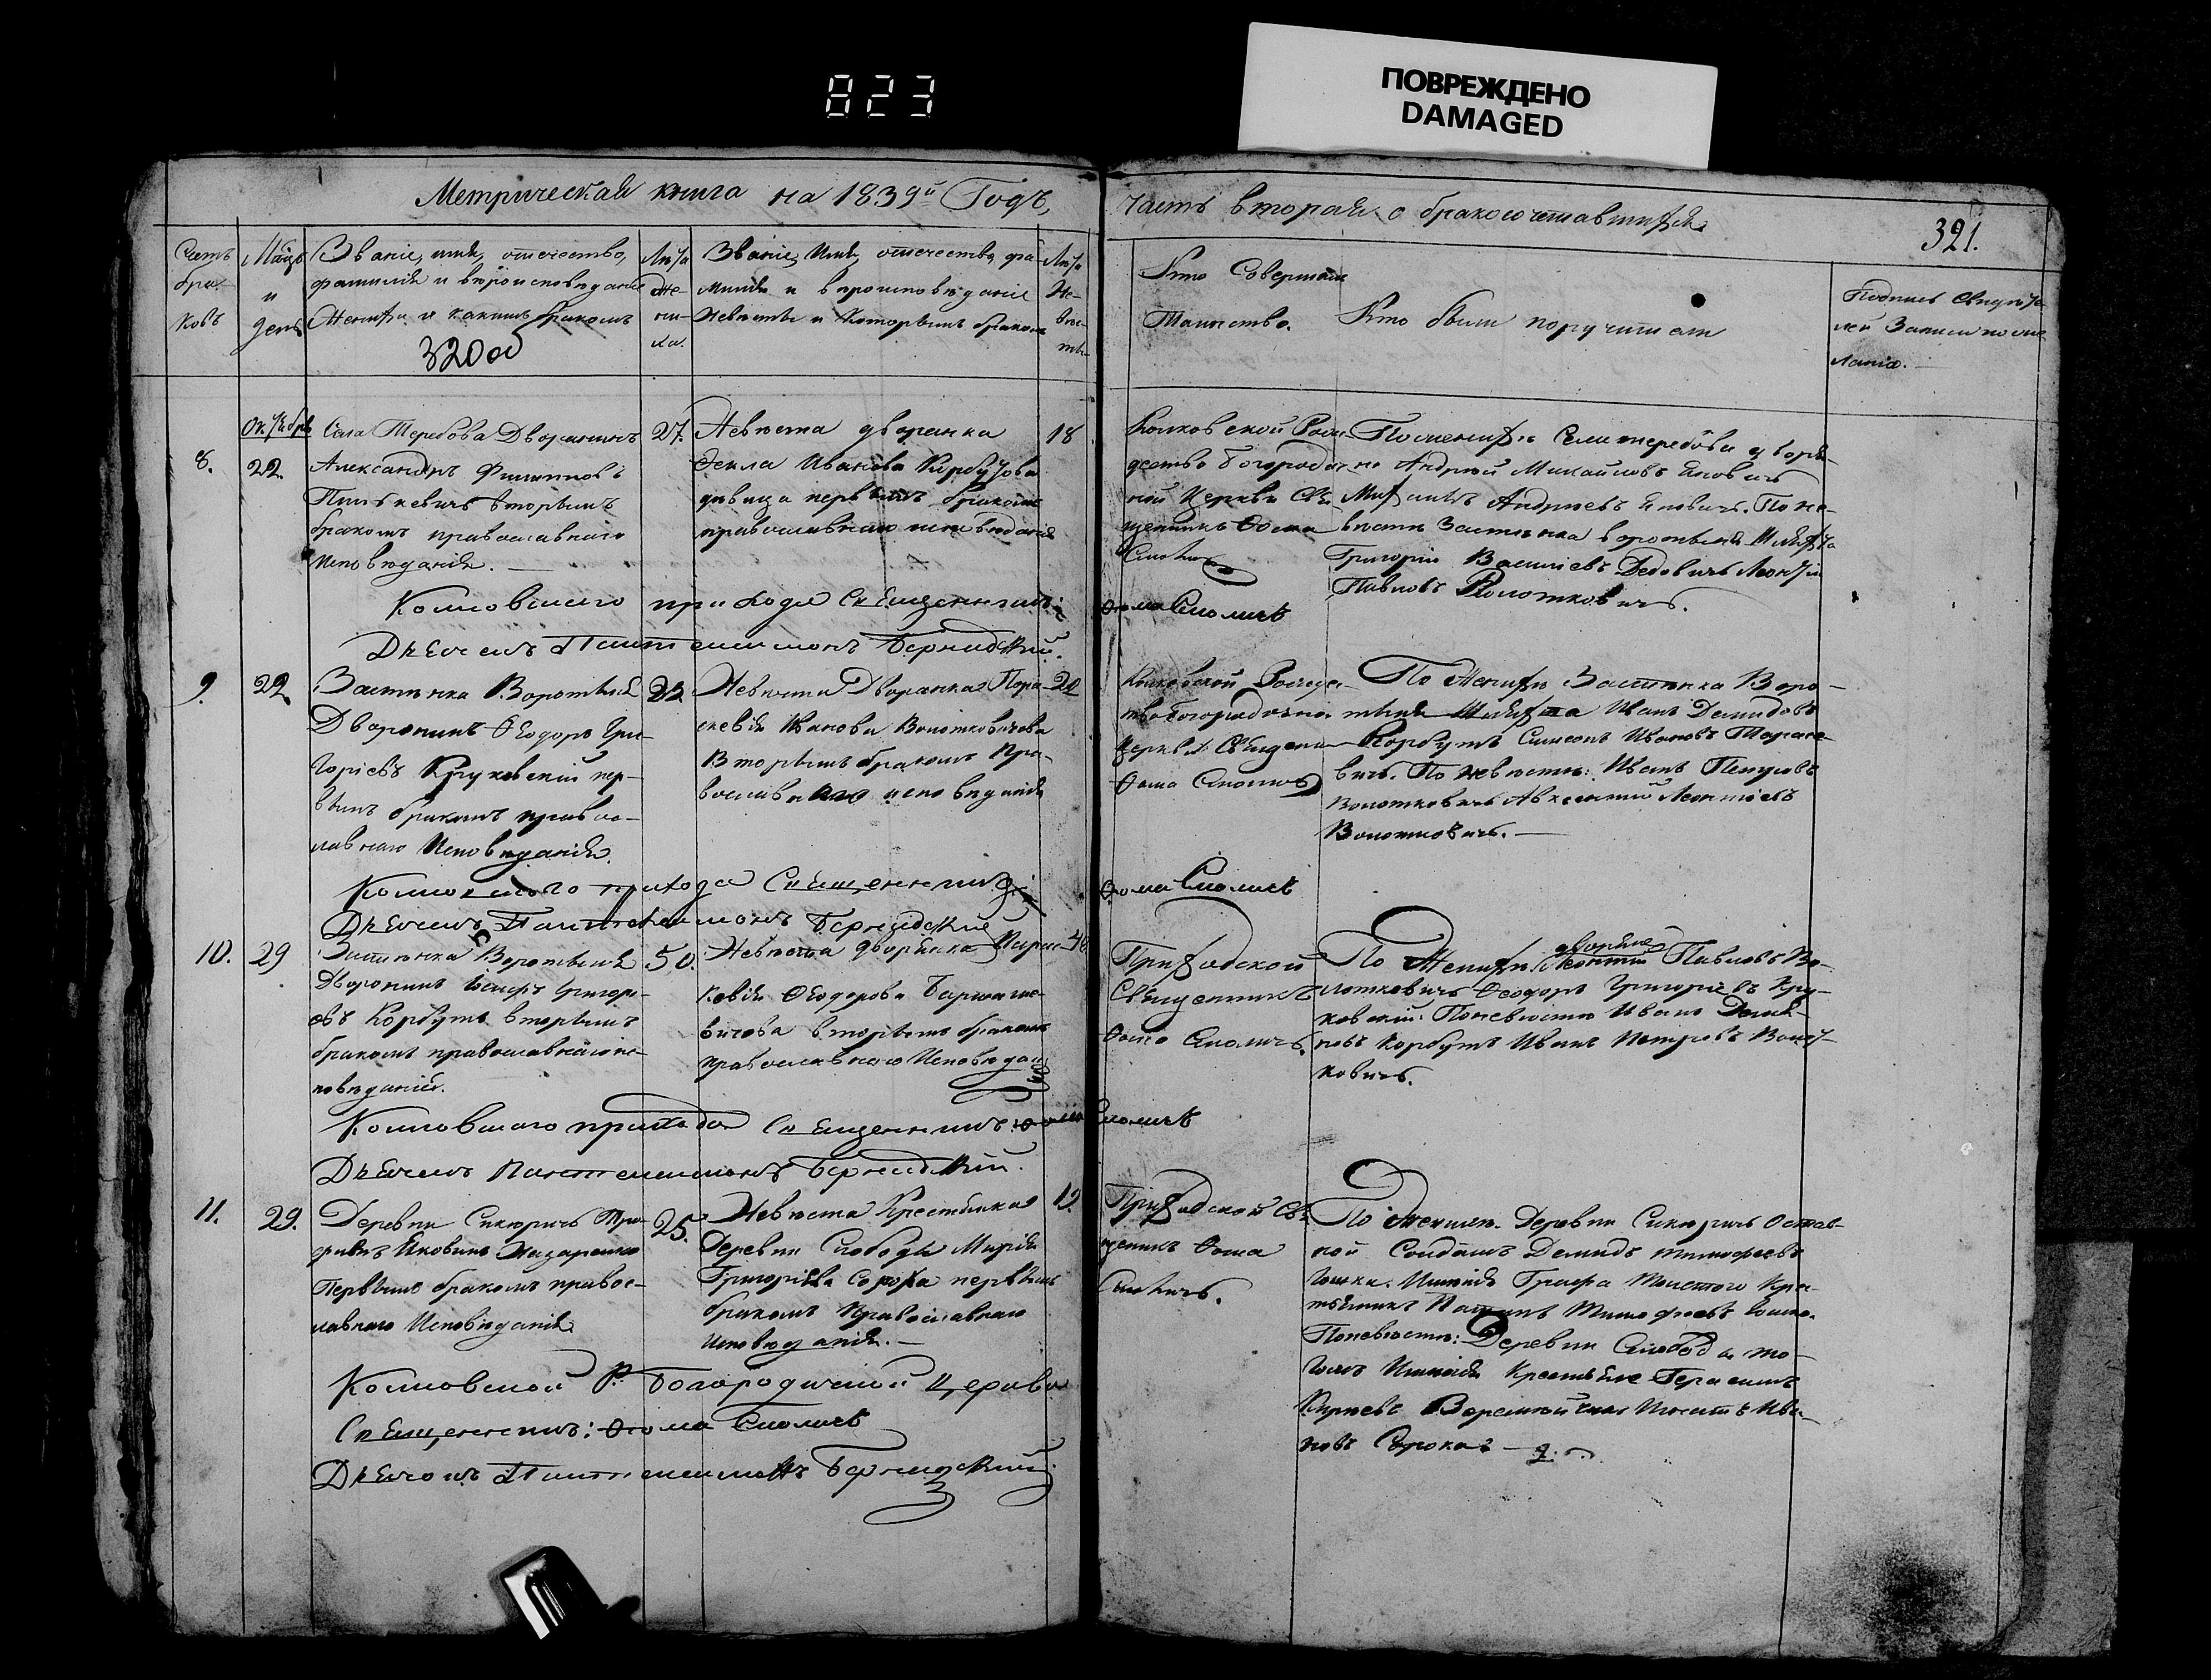 823
ПОВРЕЖДЕНО
DAMAGED
Метрическая книга на 1839й Годъ,
часть вторая о бракосочетавшихся.
321.
Счетъ браковъ
Мѣсяцъ и день
Званіе, имя, отечество,
фамилія и вѣроисповѣданіе
Жениха и какимъ бракомъ
320 об
Лѣта жениха.
Званіе, Имя, отечество, фа-
милія и вѣроисповѣданіе
Невѣсты и которымъ бракомъ
Лѣта Невѣсты
Кто Совершалъ
Таинство.
Кто были поручители
Подпись Свидѣте-
лей Записи по же-
ланію.
Октябрь
8.
22.
Села Теребова Дворянинъ
Александръ Филиповъ
вторымъ
бракомъ православнаго
исповѣданія.
27.
Невѣста дворянка
Фекла Иванова Корбутова
дѣвица первымъ бракомъ
православнаго исповѣданія
18
Колковской Рож-
дество Богородич-
ной Церкви Свя-
щенникъ Фома
Смоличъ
По женихѣ Села Теребова дворя-
не Андрей Михайловъ
Андреевъ По не-
вѣстѣ Застѣнка Воротыня
Григорій Василіевъ Дедовичъ Леонтій
Павловъ Волотковичъ.
Колковскаго прихода Священникъ: Фома Смоличъ
Дьячекъ Пантелеимонъ
9.
22.
Застѣнка Воротыня
Дворянинъ Ѳеодоръ Гри-
горіевъ Круковскій пер-
вымъ бракомъ правос-
лавнаго Исповѣданія.
Невѣста Дворянка Пара-
скевія Иванова Волотковичова
Вторымъ бракомъ Пра-
вославнаго исповѣданія
22
Колковской Рождес-
тво Богородично
Церкви Священни
Фома Смоличъ
По Женихѣ Застѣнка Воро-
тыня Иванъ Демидовъ
Корбутъ Симеонъ Ивановъ Тарасе-
вичъ. По невѣстѣ: Иванъ Петровъ
Волотковичъ Авксентій Леонтіевъ
Волотковичъ.
Колковскаго прихода Священникъ Фома Смоличъ
Дьячекъ Пантелеимонъ
10.
29
Застѣнка Воротыня
Дворянинъ Григорі-
евъ Корбутъ вторымъ
бракомъ православнаго ис-
повѣданія.
50.
Невѣста дворянка Парас-
кевія Ѳеодорова
вторымъ бракомъ
православнаго Исповѣданія
Приходской
Священникъ
Фома Смоличъ.
По Женихѣ дворяне Леонтій Павловъ Во-
лотковичъ Ѳеодоръ Григоріевъ Кру-
ковскій. По невѣстѣ Иванъ Деми-
довъ Корбутъ Иванъ Петровъ Волот-
ковичъ.
Колковскаго прихода Священникъ: Фома Смоличъ
Дьячекъ Пантелеимонъ
11.
29.
Деревни Секиричъ
Назаренко
Первымъ бракомъ правос-
лавнаго Исповѣданія
25.
Невѣста Крестьянка
Деревни Слободы Марія
Григоріева Сорока первымъ
бракомъ Православнаго
исповѣданія.
19.
Приходской Свя-
щенникъ Фома
Смоличъ.
По Женихѣ. Деревни Секиричъ Остав-
ной Солдатъ Демидъ Тимофеевъ
Имѣнія Графа Толстого Кре-
стьянинъ Тимофеевъ
По невѣстѣ: Деревни Слобода то-
гожъ Имѣнія Крестьяне Герасимъ
Игнатъ Ива-
новъ Сорока
Колковской Р: Богородичной Церкви
Священникъ: Фома Смоличъ
Дьячекъ Пантелеимонъ